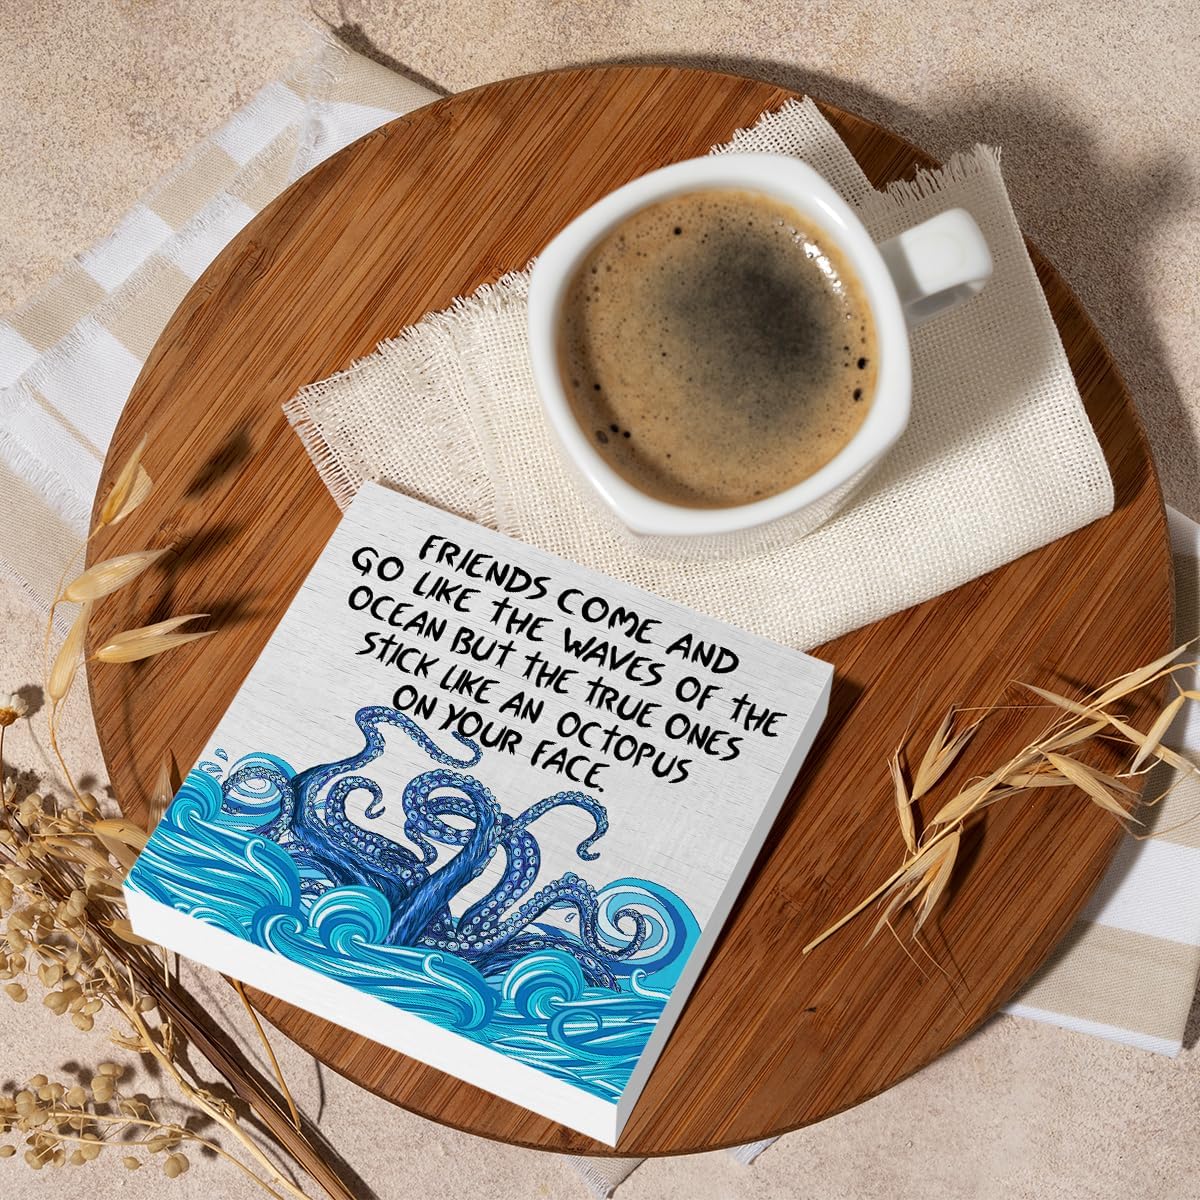 FRIENDS COME AND
GO LIKE THE WAVES OF THE
OCEAN BUT THE TRUE ONES
STICK LIKE AN OCTOPUS
ON YOUR FACE.